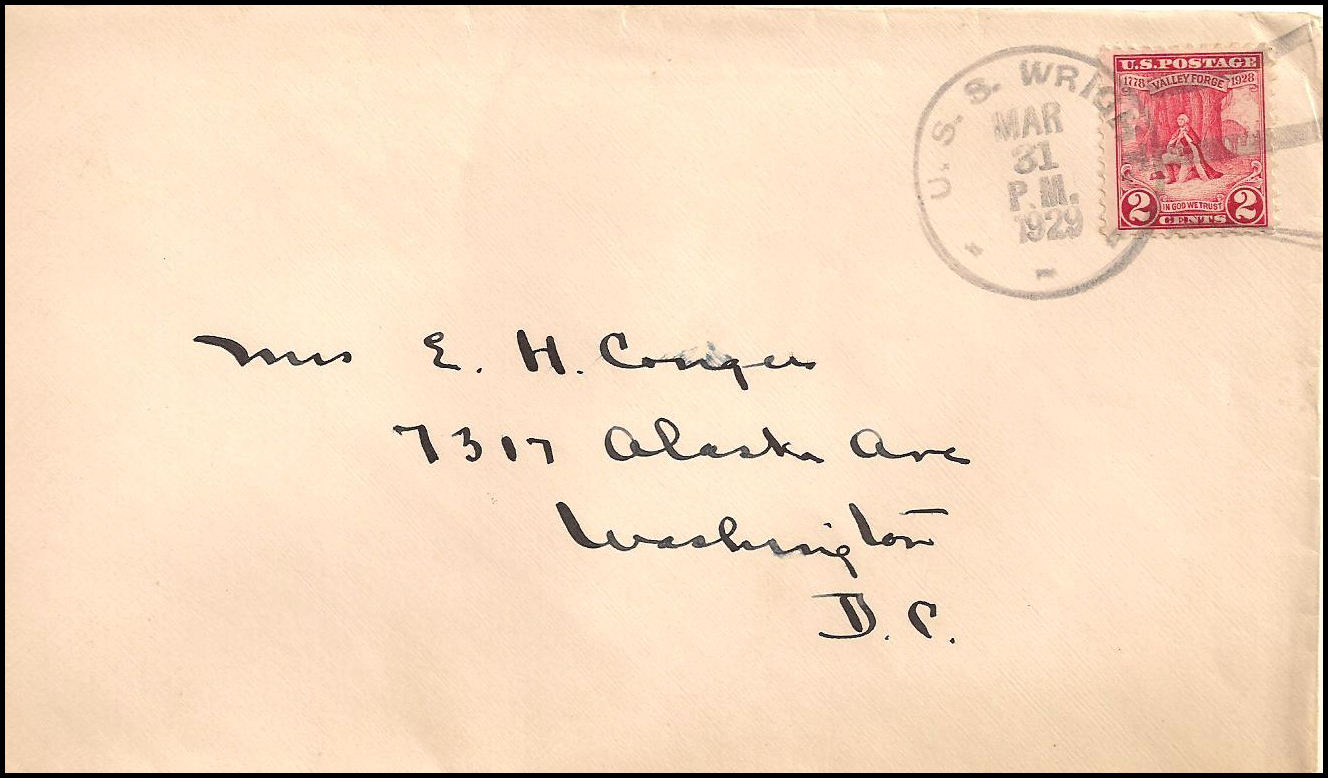 U. S. S. WRIGHT
MAR
31
P.M.
1929
U.S. POSTAGE
1778 VALLEY FORGE 1928
IN GOD WE TRUST
2 CENTS 2
Mrs E. H. Conger
7317 Alaska Ave
Washington
D. C.